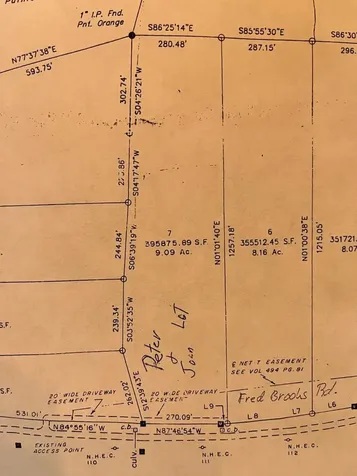 1" I.P. Fnd.
Pnt. Orange
N77°37'38"E
593.75'
S86°25'14"E
280.48'
S85°55'30"E
287.15'
S86°30'
296.
302.74'
S04°26'21"W
S04°17'47"W
244.84'
S06°39'19"W
239.34'
S03°52'35"W
262.02'
S12°39'43"E
7
395875.89 S.F.
9.09 Ac.
N01°01'40"E
1257.18'
6
355512.45 S.F.
8.16 Ac.
N01°00'38"E
1215.05'
351721.
8.07
S.F.
S.F.
Peter
&
Joan Lot
N.E.T EASEMENT
SEE VOL 494 PG.81
Fred Brooks Rd.
20 WIDE DRIVEWAY
EASEMENT
20 WIDE DRIVEWAY
EASEMENT
531.01'
N84°55'16"W
270.09'
N87°46'54"W
L9
L8
L7
L6
c.b.
c.b.
culv.
EXISTING
ACCESS POINT
N.H.E.C.
110
N.H.E.C.
111
N.H.E.C.
112